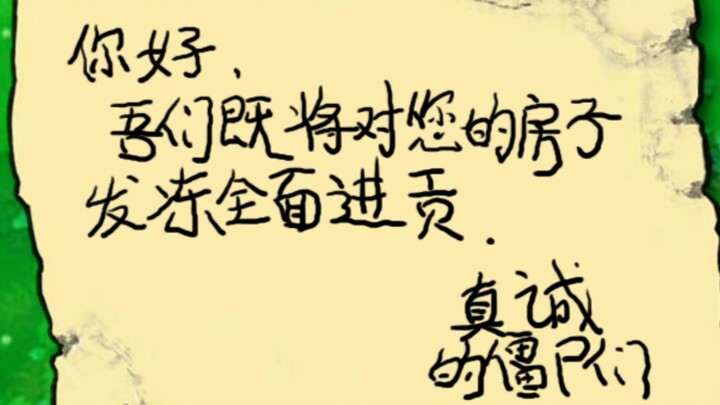 你好,
吾们既将对您的房子
发冻全面进贡.
真诚
的僵尸们